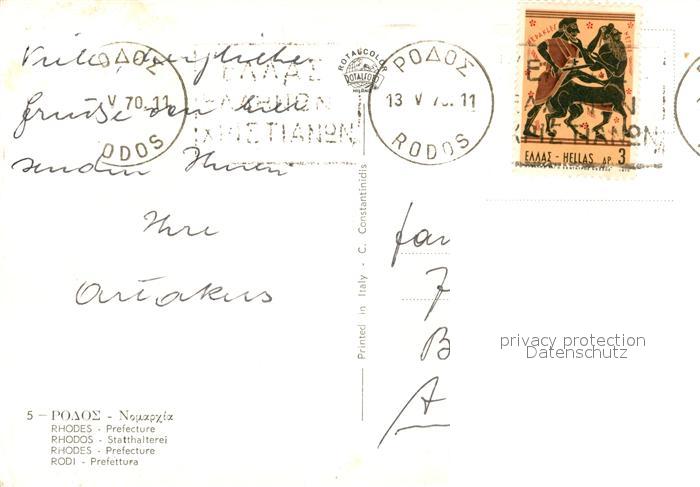 Viele, herzliche
Grüsse von hier
senden Ihnen
Ihre
ΡΟΔΟΣ
V 70. 11
RODOS
ΕΛΛΑΣ
ΕΛΛΗΝΩΝ
ΧΡΙΣΤΙΑΝΩΝ
ROTALCOLOR
ROTALFOTO
MILANO
ΡΟΔΟΣ
13 V 70. 11
RODOS
ΕΛΛΑΣ - HELLAS ΔΡ. 3
Printed in Italy - C. Constantinidis
Fam
B
A
privacy protection
Datenschutz
5 – ΡΟΔΟΣ - Νομαρχία
RHODES - Prefecture
RHODOS - Statthalterei
RHODES - Prefecture
RODI - Prefettura